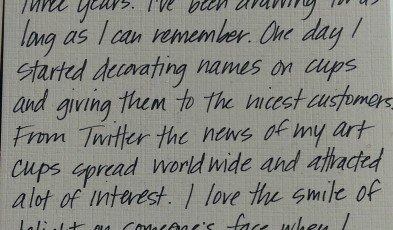 three years. I've been drawing for as
long as I can remember. One day I
started decorating names on cups
and giving them to the nicest customers.
From Twitter the news of my art
cups spread world wide and attracted
alot of interest. I love the smile of
delight on someone's face when I